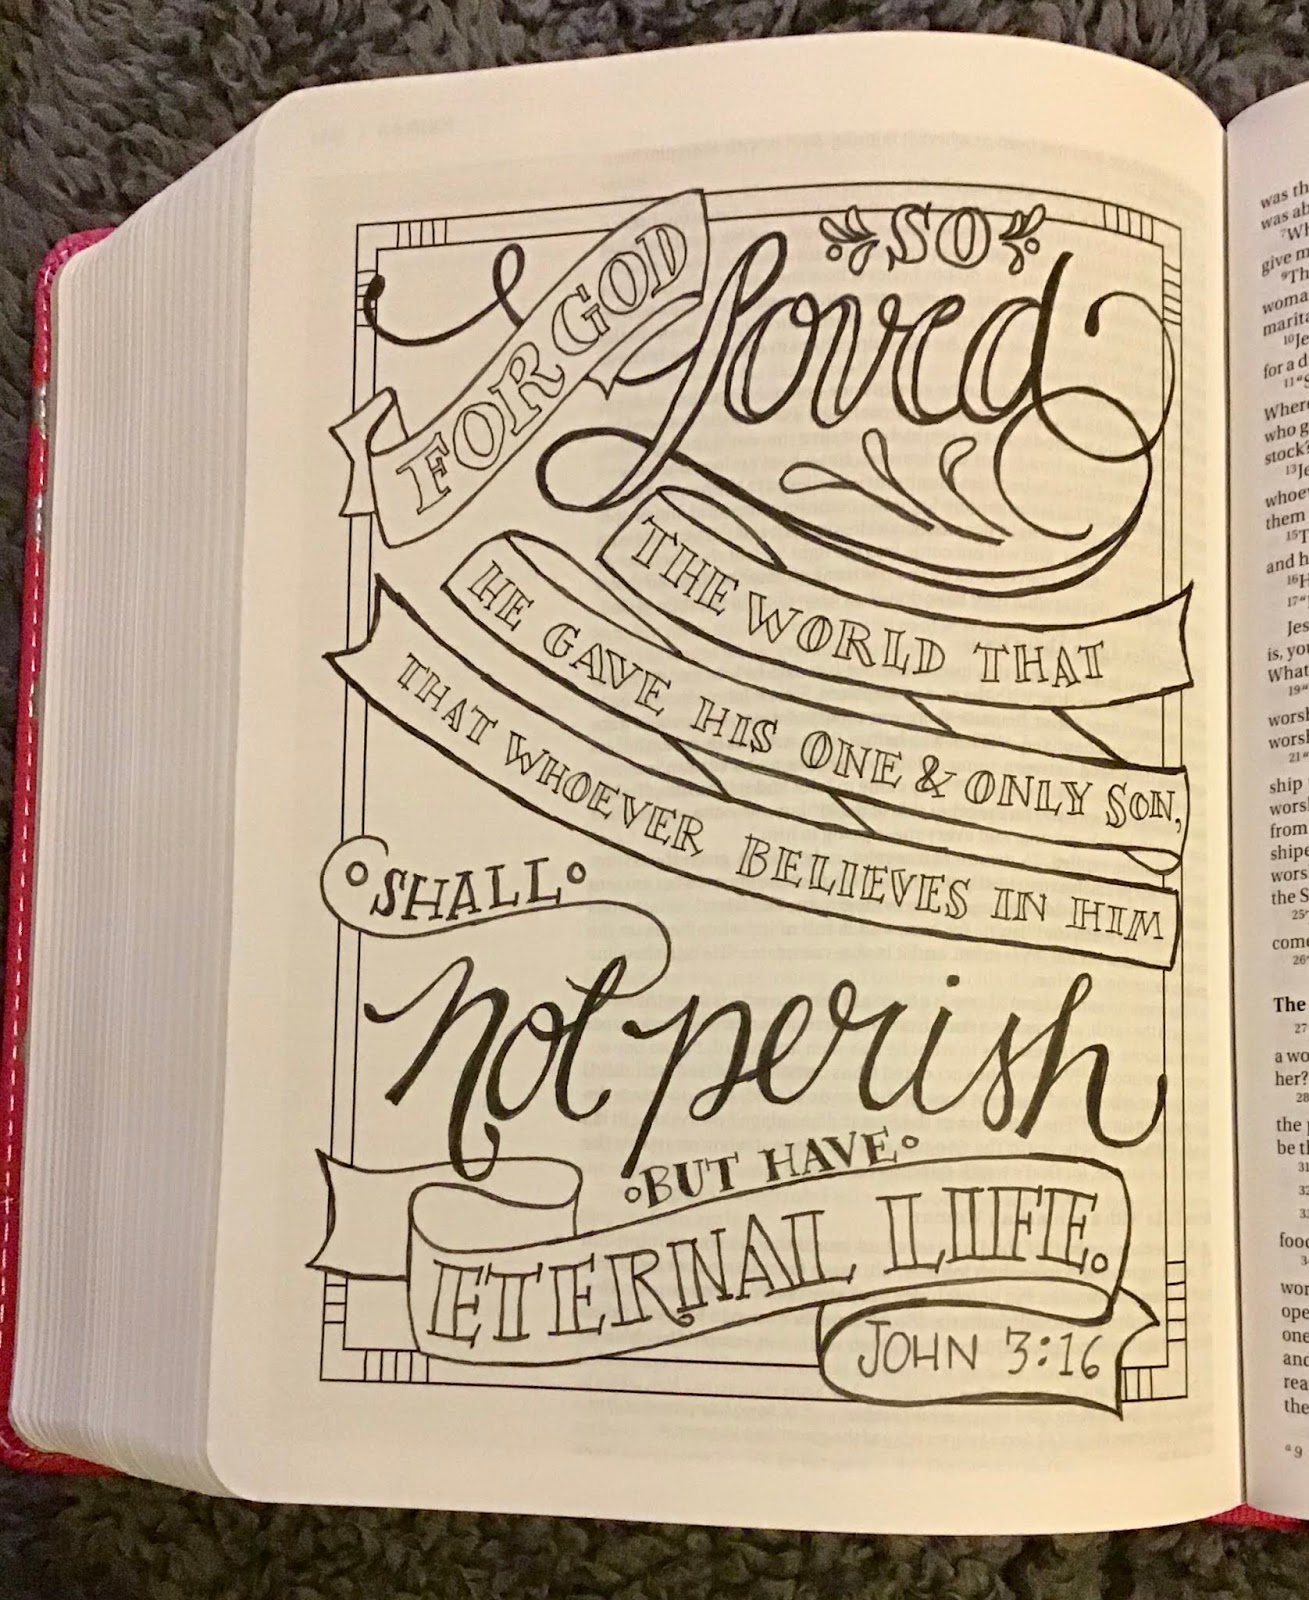 FOR GOD
SO
Loved
THE WORLD THAT
HE GAVE HIS ONE & ONLY SON,
THAT WHOEVER BELIEVES IN HIM
SHALL
not perish
BUT HAVE
ETERNAL LIFE.
JOHN 3:16
was th
was ab
7Wh
give m
9Th
woma
marita
10Je
for a d
11"S
Where
who g
stock?
13Je
whoev
them
15T
and h
16H
17"
Jes
is, you
What
19"
worsh
worsh
21"
ship
worsh
from
shipe
worsh
the S
25"
come
26"
The
27
a wo
her?
28
the p
be th
31
32
33
food
34
wor
ope
one
and
rea
the
a 9